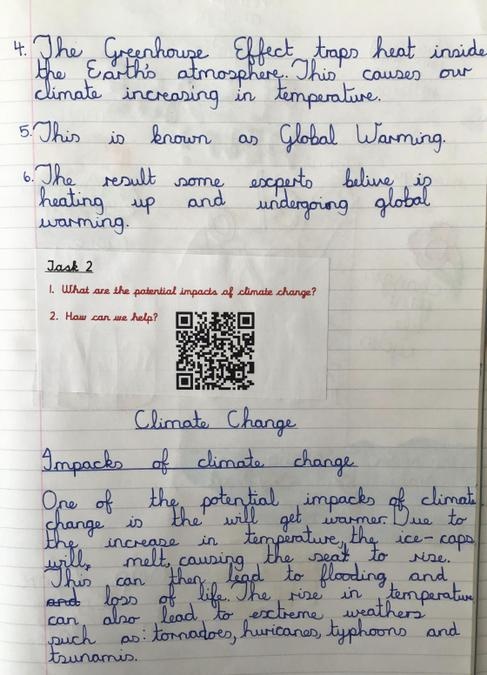 4. The Greenhouse Effect traps heat inside
the Earth's atmosphere. This causes our
climate increasing in temperature.
5. This is known as Global Warming.
6. The result some experts belive is
heating up and undergoing global
warming.
Task 2
1. What are the potential impacts of climate change?
2. How can we help?
Climate Change
Impacks of climate change
One of the potential impacks of climate
change is the will get warmer. Due to
the increase in temperature, the ice-caps
will, melt, causing the seat to rise.
This can then lead to flooding and
and loss of life. The rise in temperature
can also lead to extreme weathers
such as: tornadoes, huricanes, typhoons and
tsunamis.